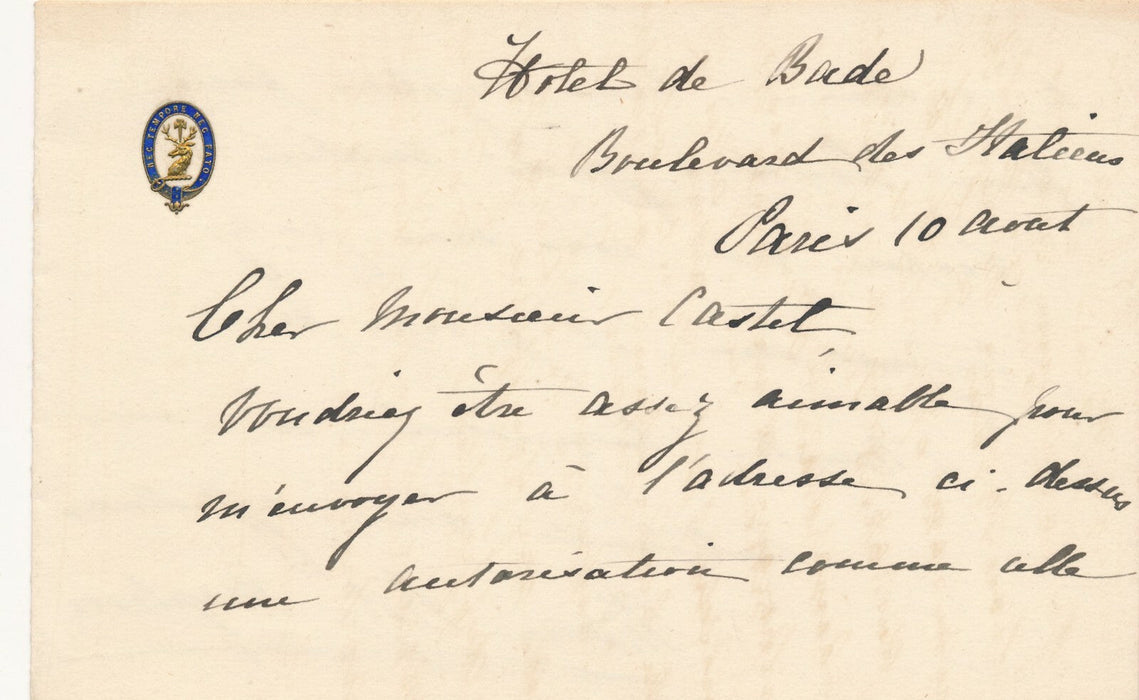 NEC TEMPORE NEC FATO
Hotel de Bade
Boulevard des Italiens
Paris 10 Aout
Cher Monsieur Castel,
Voudriez être assez aimable pour
m'envoyer à l'adresse ci-dessus
une autorisation comme celle